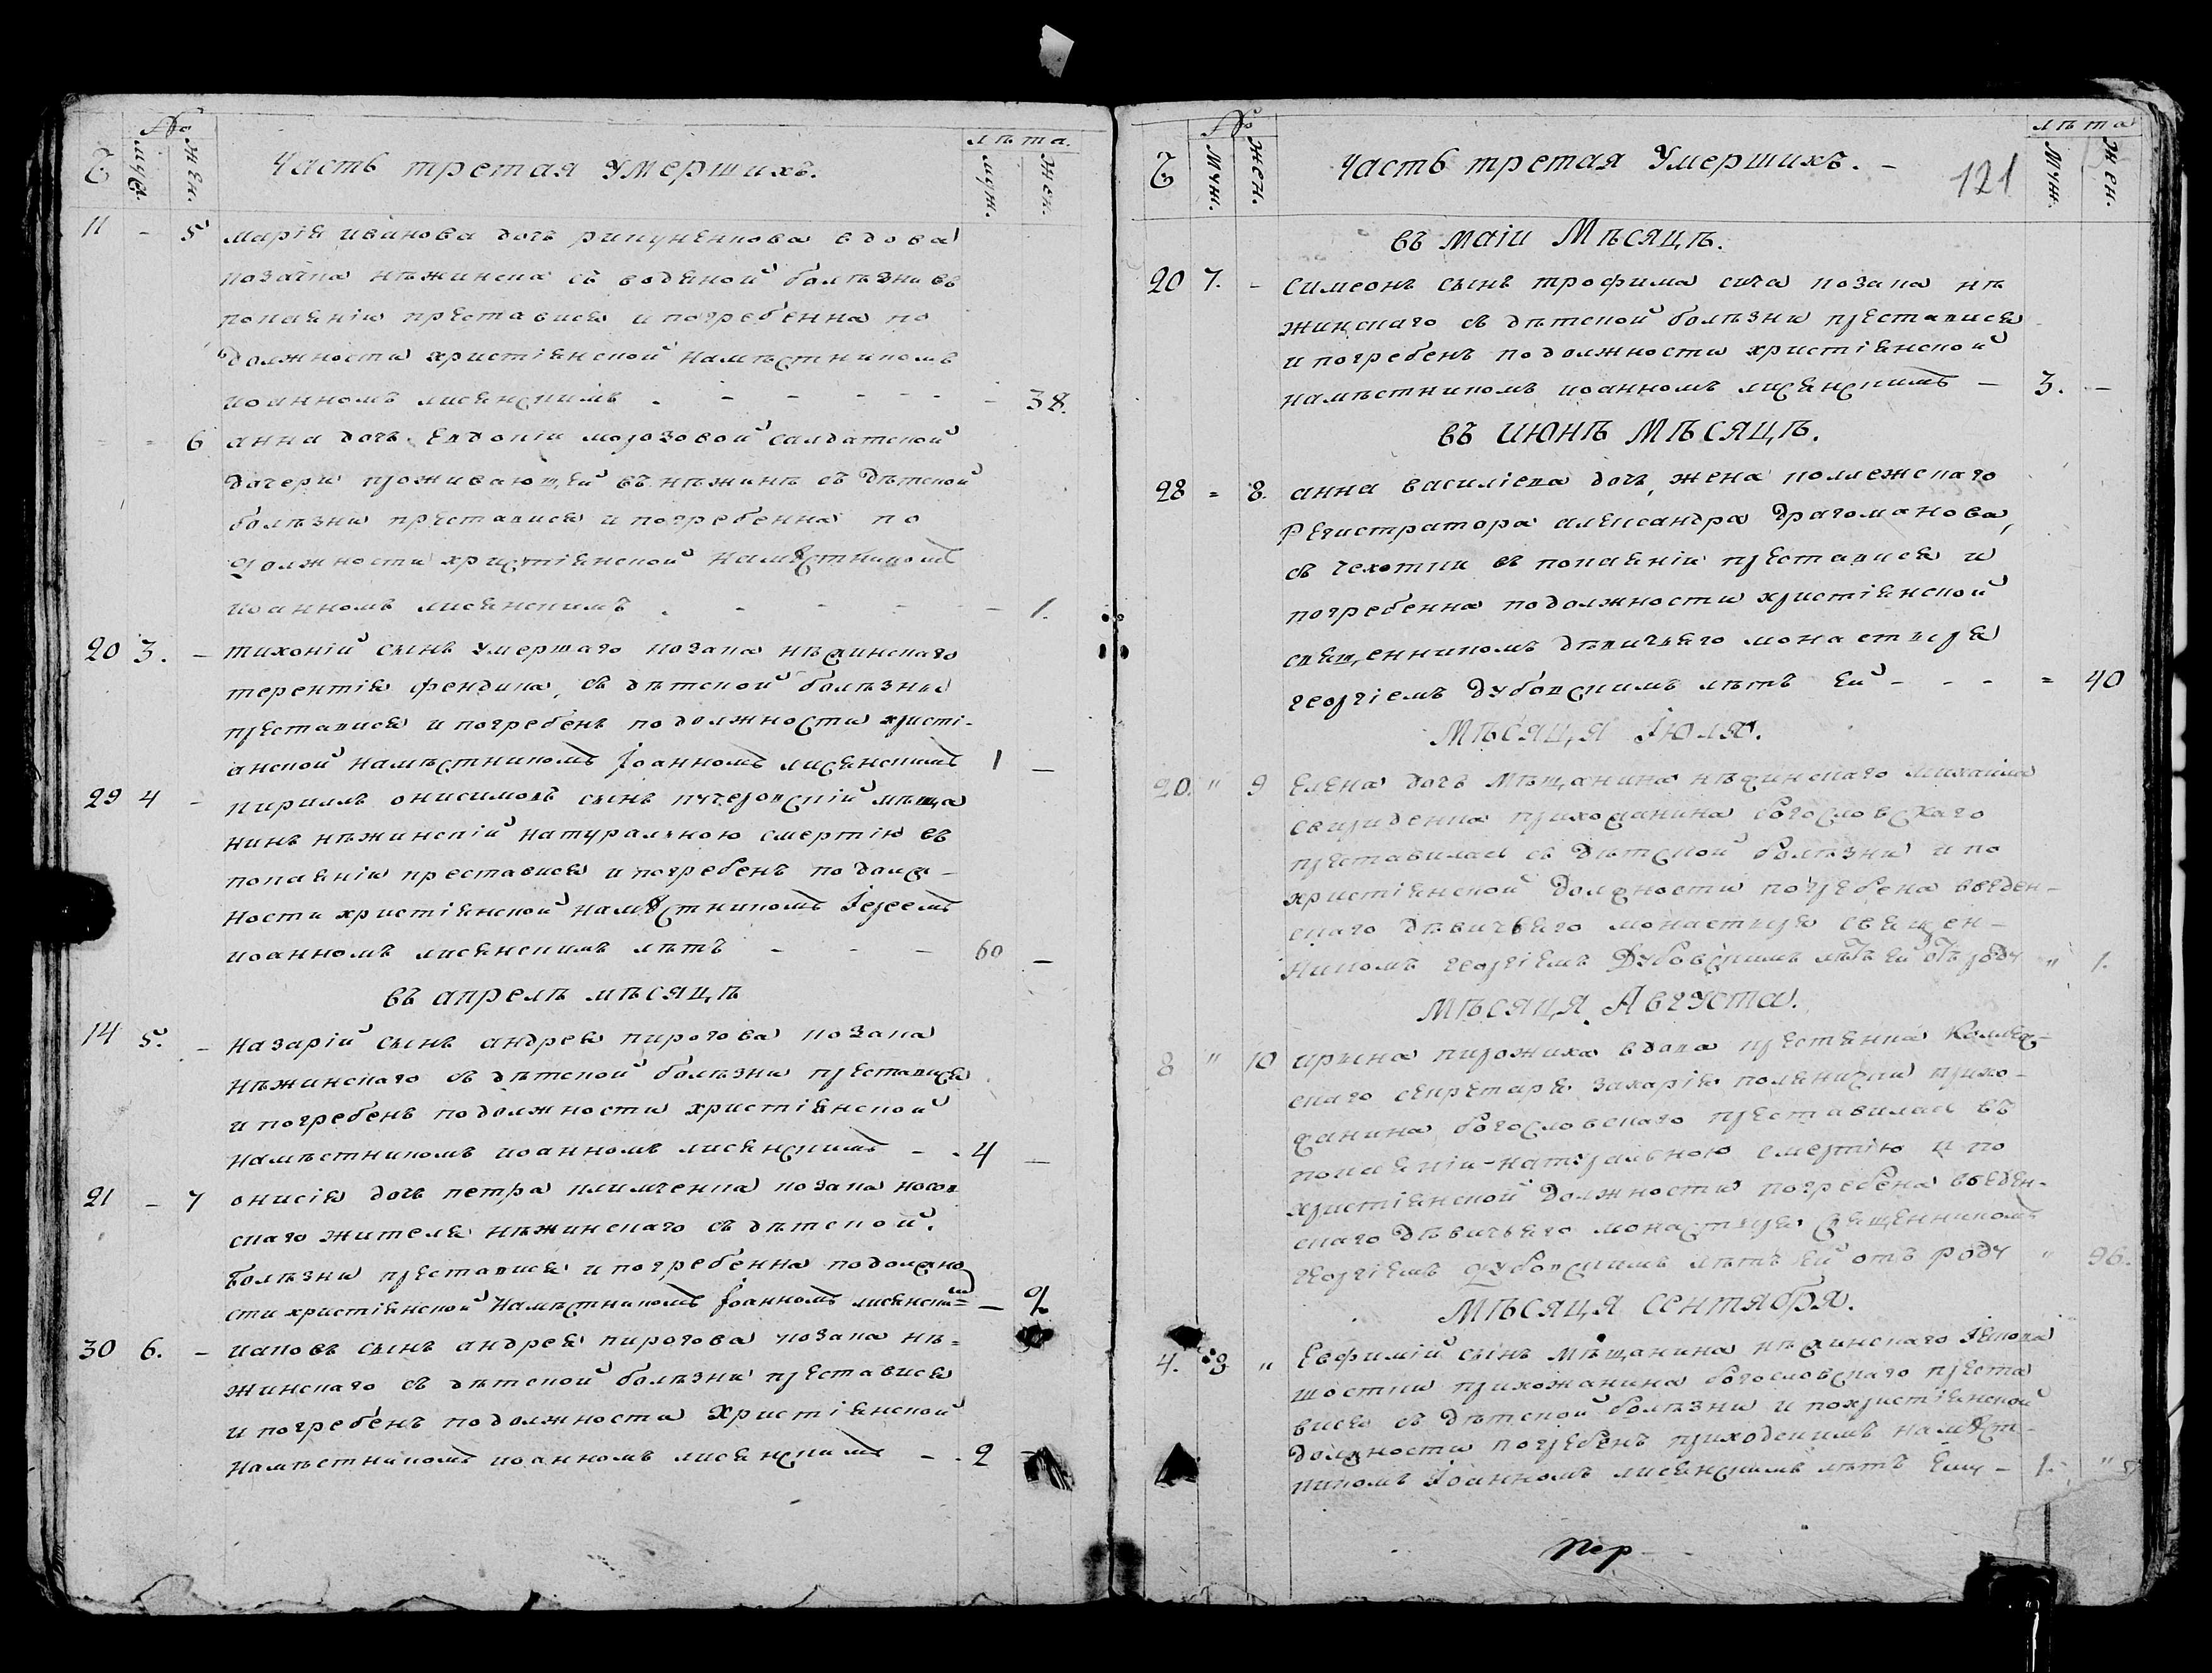 №
Ч муж. жен. Часть третая Умершихъ. лѣта. муж. жен.
11 - 5 марія иванова дочь вдова
козачка нѣжинска съ водяной болѣзни въ
покаяніи преставися и погребенна по
должности христіянской намѣстникомъ
иоанномъ лисянскимъ . - - - - - - 38.
- - 6 анна дочь Евдокіи морозовой салдатской
дочери проживающей въ нѣжинѣ съ дѣтской
болѣзни преставися и погребенна по
должности христіянской намѣстникомъ
иоанномъ лисянскимъ . - - - - - 1.
20 3. - тихоній сынъ умершаго козака нѣжинскаго
терентія фендика, съ дѣтской болѣзны
преставися и погребенъ по должности христі-
анской намѣстникомъ Іоанномъ лисянскимъ 1 -
29 4 - кирилъ онисимовъ сынъ мѣща
нинъ нѣжинскій натуральною смертію въ
покаяніи преставися и погребенъ по долж-
ности христіянской намѣстникомъ Іереемъ
иоанномъ лисянскимъ лѣтъ - - - 60 -
въ апрелѣ мѣсяцѣ
14 5. - назарій сынъ андрея пирогова козака
нѣжинскаго съ дѣтской болѣзни преставися
и погребенъ по должности христіянской
намѣстникомъ иоанномъ лисянскимъ - - 4 -
21 - 7 онисія дочь петра клименка козака носов
скаго жителя нѣжинскаго съ дѣтской
болѣзни преставися и погребенна по должно
сти христіянской намѣстникомъ Іоанномъ лисянски= -
30 6. - иаковъ сынъ андрея пирогова козака нѣ=
жинскаго съ дѣтской болѣзни преставися
и погребенъ по должности христіянской
намѣстникомъ иоанномъ лисянскимъ - . 2
№
Ч муж. жен. Часть третая Умершихъ. - 121 лѣта муж. жен.
въ маіи Мѣсяцѣ.
20 7. - симеонъ сынъ трофима сича козака нѣ
жинскаго съ дѣтской болѣзни преставися
и погребенъ по должности христіянской
намѣстникомъ иоанномъ лисянскимъ - 3. -
въ июнѣ мѣсяцѣ.
28 = 8. анна василіева дочь, жена коллежскаго
Регистратора александра драгоманова,
съ чехотки въ покаяніи преставися и
погребенна по должности христіянской
священникомъ дѣвичьяго монастыря
георгіемъ дубовскимъ лѣтъ ей - - - = 40
Мѣсяця Іюля.
20. " 9 Елена дочь мѣщанина нѣжинскаго михаила
свириденка прихожанина богословскаго
преставилась съ дѣтской болѣзни и по
христіянской должности погребена введен-
скаго дѣвичьяго монастыря священ-
никомъ георгіемъ Дубовскимъ лѣтъ ей отъ роду " 1.
Мѣсяця Августа.
8 " 10 ирына пирожиха вдова крестянка Коллеж-
скаго секретаря захарія прихо-
жанина богословскаго преставилась въ
покаяніи натуральною смертію и по
христіянской должности погребена введен-
скаго дѣвичьяго монастыря священникомъ
георгіемъ дубовскимъ лѣтъ ей отъ роду " 96.
Мѣсяця сентября.
4. 8 " Евфимій сынъ мѣщанина нѣжинскаго Іякова
шостки прихожанина богословскаго преста
вися съ дѣтской болѣзни и по христіянской
должности погребенъ приходскимъ намѣст-
никомъ Іоанномъ лисянскимъ лѣтъ Ему - 1. "